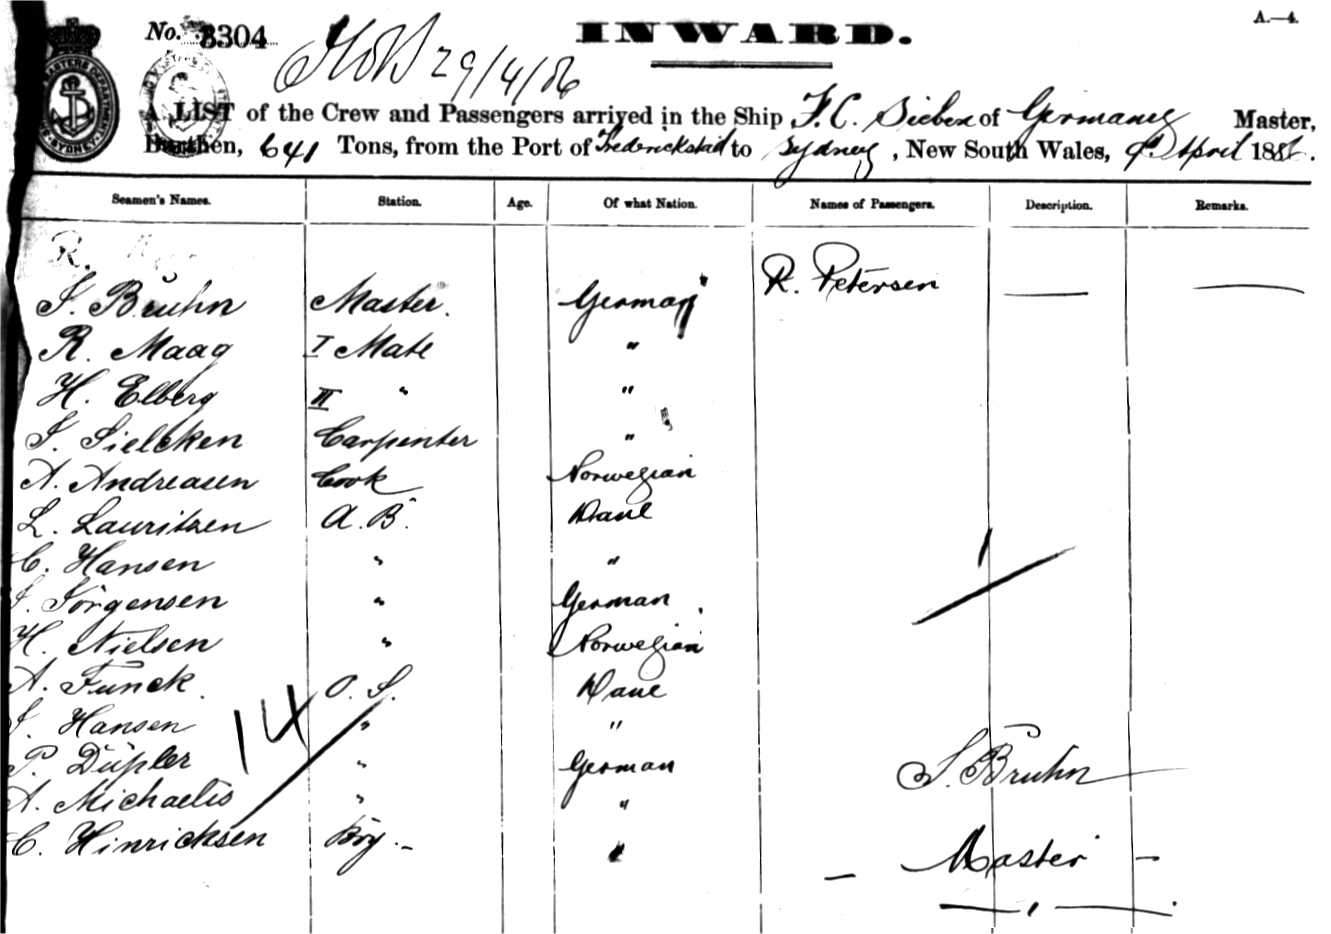 A.—4.
No. 3304
INWARD.
29/4/86
A LIST of the Crew and Passengers arrived in the Ship F. C. Sieben of Germany Master,
Burthen, 641 Tons, from the Port of Frederickstad to Sydney, New South Wales, April 188
Seamen's Names. Station. Age. Of what Nation. Names of Passengers. Description. Remarks.
R.
J. Bruhn Master. German R. Petersen — —
R. Maag I Mate "
H. Elberg II " "
J. Sielcken Carpenter "
A. Andreasen Cook Norwegian
L. Lauritzen A. B. Dane
C. Hansen " "
J. Jörgensen " German
H. Nielsen " Norwegian
A. Funck O. S. Dane
J. Hansen " "
P. Düpler " German
A. Michaelis " "
C. Hinricksen Boy "
14
1
J. Bruhn
Master